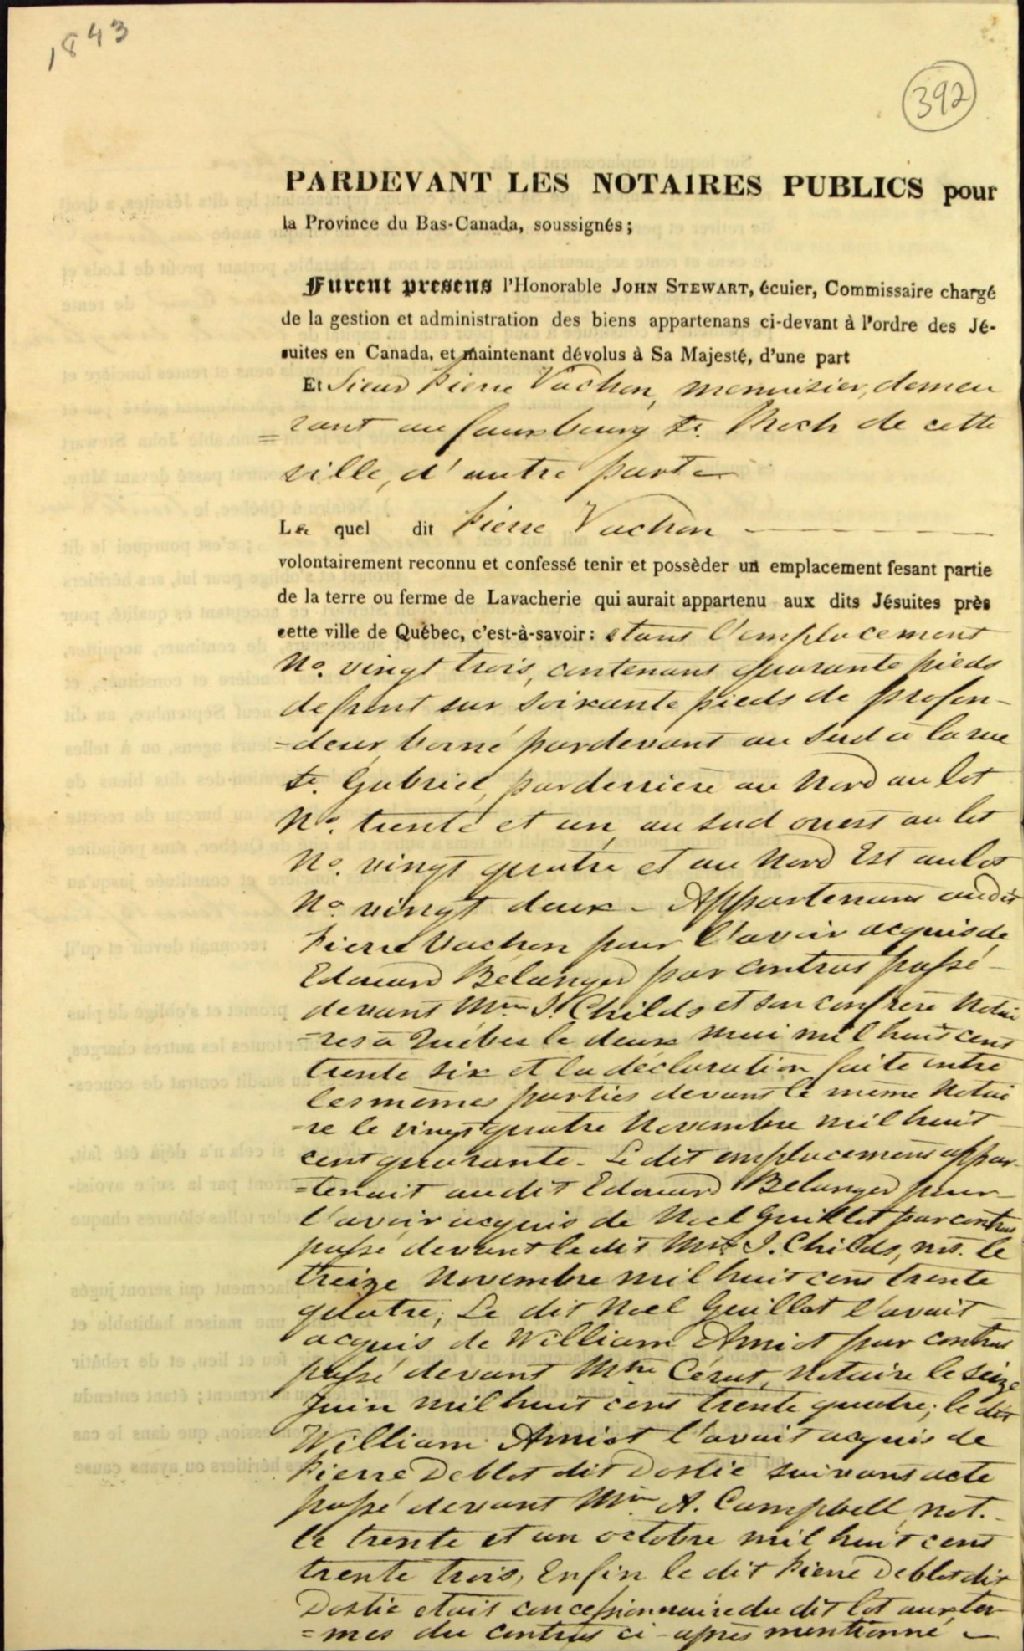 1843
392
PARDEVANT LES NOTAIRES PUBLICS pour
la Province du Bas-Canada, soussignés;
Furent presens l'Honorable JOHN STEWART, écuier, Commissaire chargé
de la gestion et administration des biens appartenans ci-devant à l'ordre des Jé-
suites en Canada, et maintenant dévolus à Sa Majesté, d'une part
Et Sieur Pierre Vachon, menuisier, demeu
=rant au fauxbourg St. Roch de cette
ville, d'autre part
Le quel dit Pierre Vachon
volontairement reconnu et confessé tenir et possèder un emplacement fesant partie
de la terre ou ferme de Lavacherie qui aurait appartenu aux dits Jésuites près
cette ville de Québec, c'est-à-savoir: étant l'emplacement
No. vingt trois, contenant quarante pieds
de front sur soixante pieds de profon-
=deur borné pardevant au sud à la rue
St. Gabriel, parderriere au Nord au lot
No. trente et un, au sud ouest au lot
No. vingt quatre et au Nord Est au lot
No. vingt deux - Appartenant audit
Pierre Vachon pour l'avoir acquis de
Edouard Bélanger par contrat passé
devant Mtre J. Childs et son confrère Notai
=res à Québec le deux mai mil huit cent
trente six et la déclaration faite entre
les mêmes parties devant le même Notai
=re le vingt quatre Novembre mil huit
cent quarante - Le dit emplacement appar-
=tenait audit Edouard Belanger pour
l'avoir acquis de Noel Guillot par contrat
passé devant le dit Mtre J. Childs, not. le
treize Novembre mil huit cent trente
quatre; Le dit Noel Guillot l'avait
acquis de William Amiot par contrat
passé devant Mtre Notaire le seize
Juin mil huit cent trente quatre; le dit
William Amiot l'avait acquis de
Pierre Deblot dit Dostie suivant acte
passé devant Mtre A. Campbell, not.
le trente et un octobre mil huit cent
trente trois, Enfin le dit Pierre Deblot dit
Dostie etait concessionnaire du dit lot aux ter-
=mes du contrat ci-après mentionné -